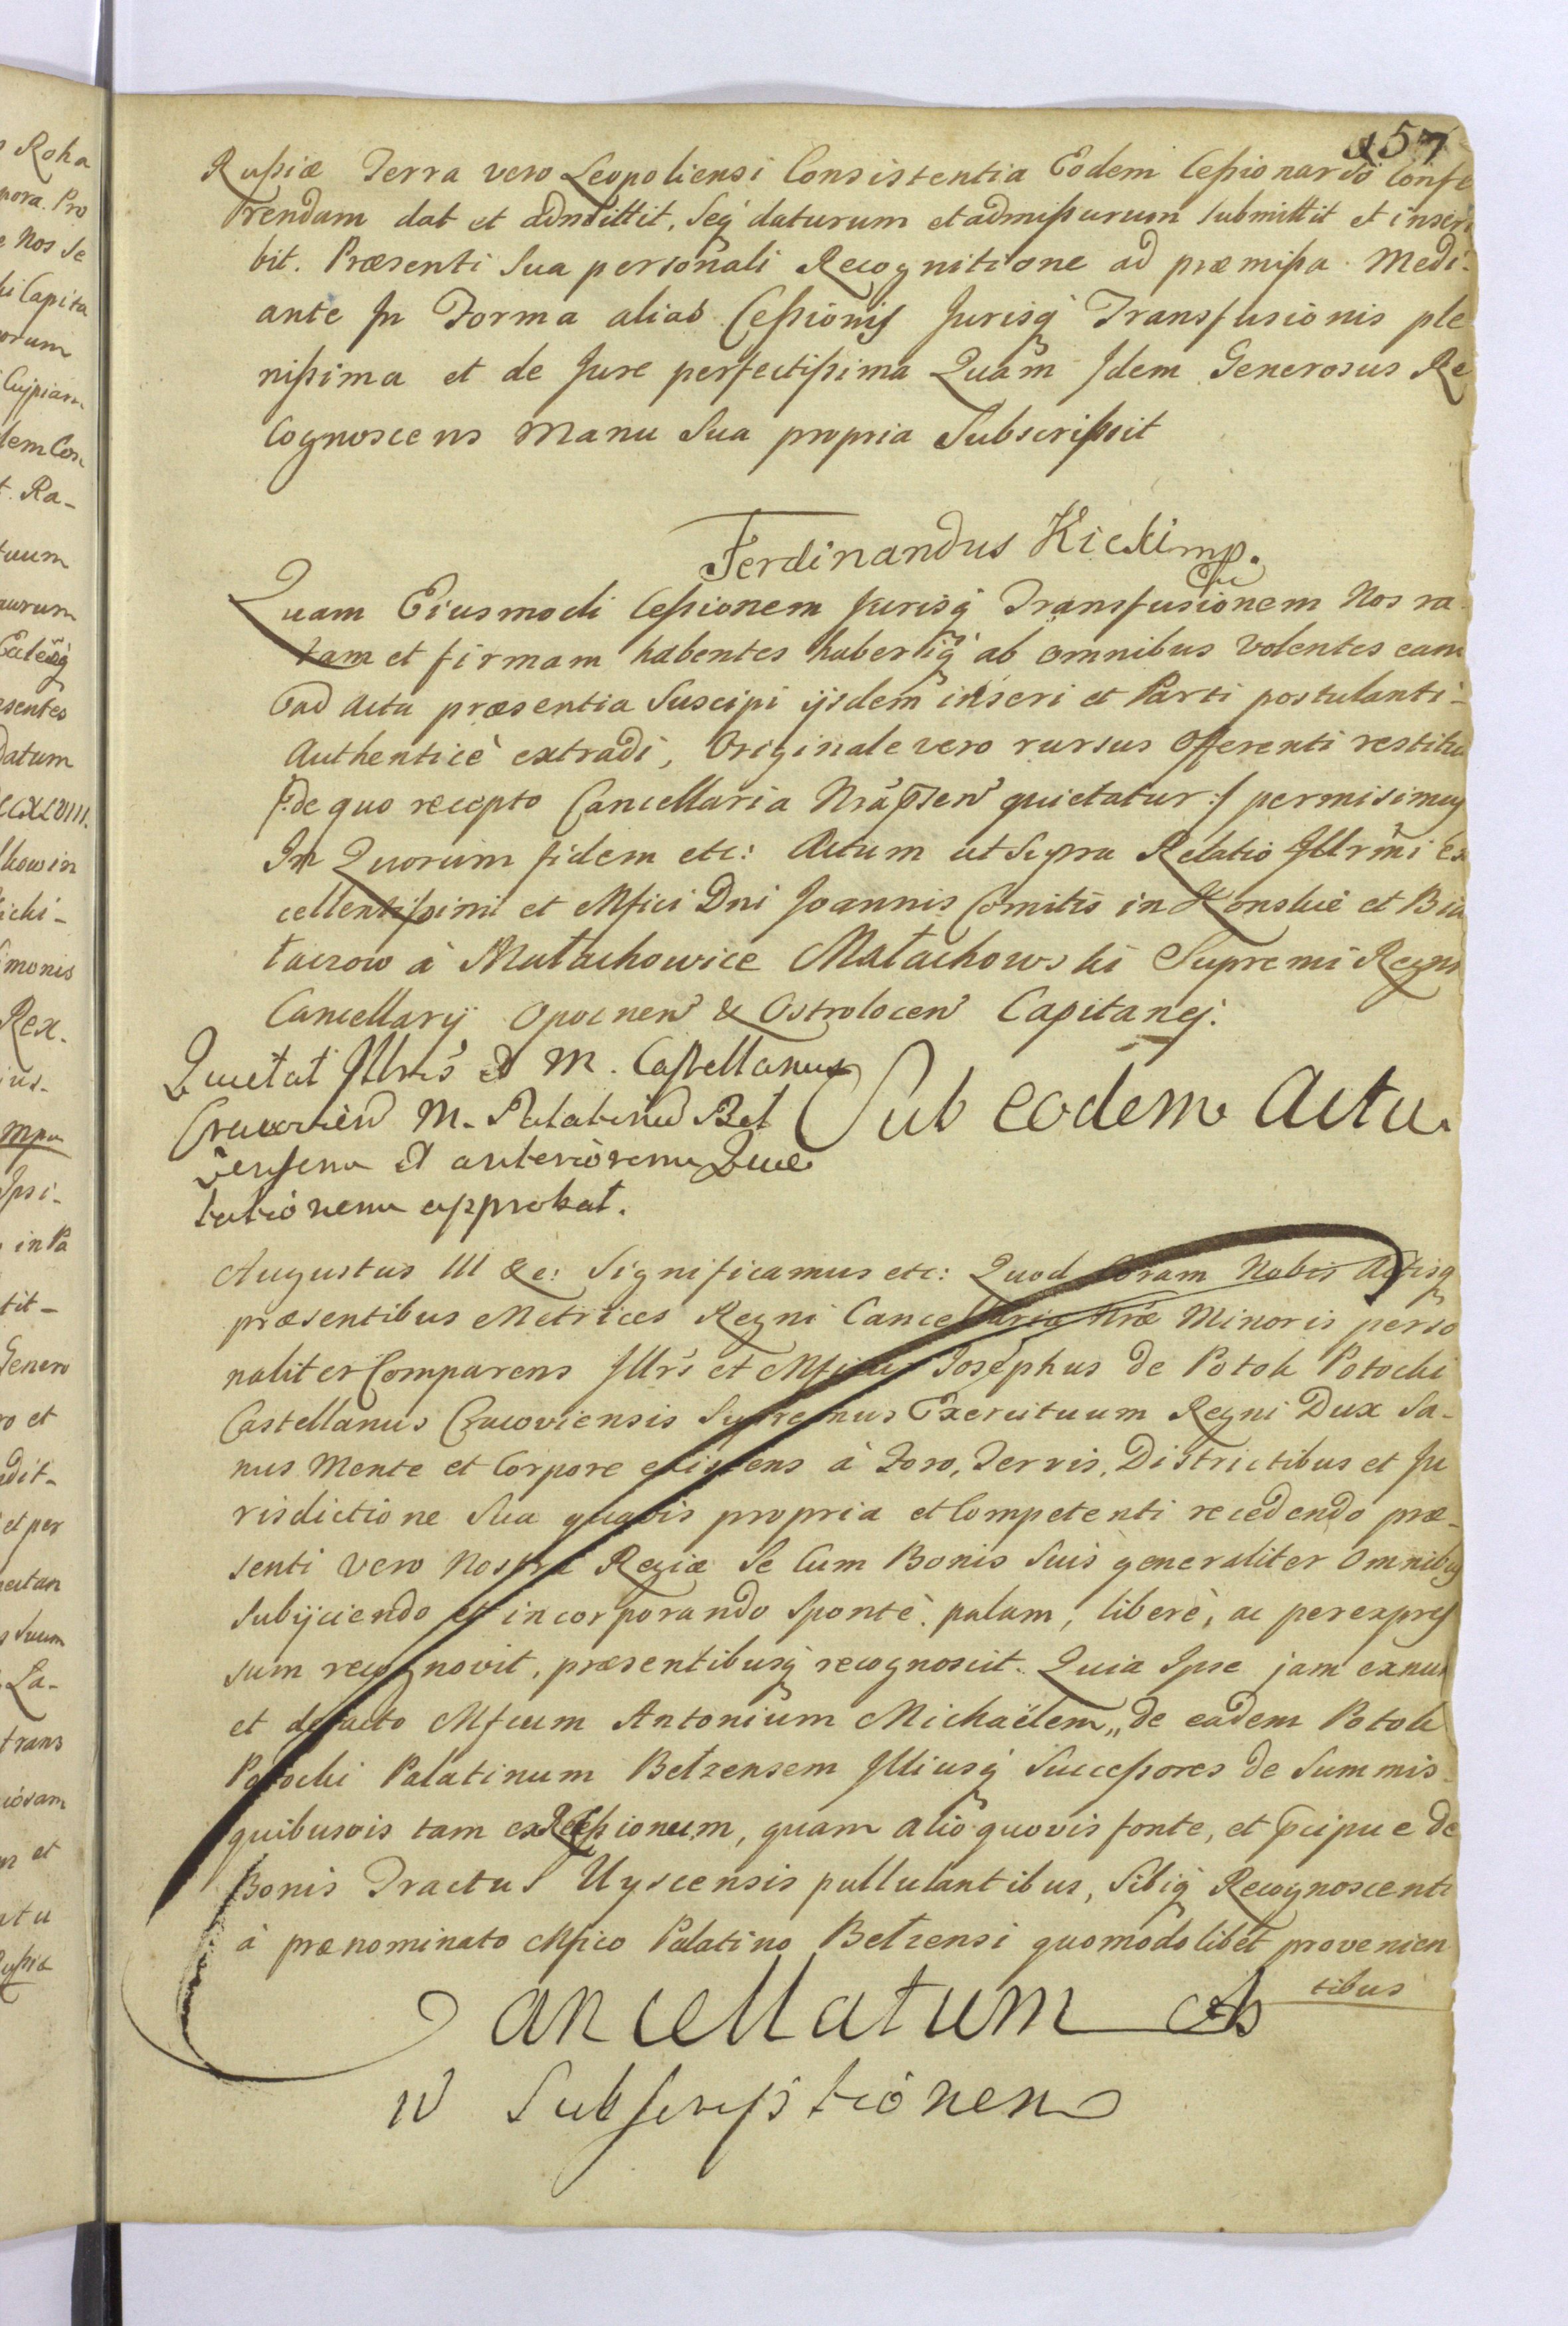 157
Rusſiæ Terra vero Leopoliensi Consistentia Eodem Ceſsionario Confe
rendam dat et admittit, Seq́ daturum et admiſsurum submittit et inscri
bit. Præsenti Sua personali Recognitione ad præmiſsa Medi-
ante In Forma alias Ceſsionis Jurisq́ Transfusionis ple
niſsima et de Jure perfectiſsima Quam Idem Generosus Re
cognoscens Manu Sua propria Subscripsit
Ferdinandus Kicki mp.
Quam Eiusmodi Ceſsionem Jurisq́ Transfusionem Nos ra
tam et firmam habentes haberiq́ ab omnibus Volentes eam
ad Acta præsentia Suscipi ijsdem inseri et Parti postulanti-
Authenticè extradi, Originale vero rursus Offerenti restitui
/:de quo recepto Cancellaria Nrã p̃sen̄ quietatur:/ permisimus
In Quorum fidem etc: Actum ut Supra Relatio Illr̃mi Ex
cellentiſsimi et Mſici Dni Joannis Comitis in Konskie et Bia
łaczow à Małachowice Małachowski Supremi Regni
Cancellarij Opocnen̄ & Ostrolocen̄ Capitanej.
Quietat Illr̃is et M. Castellanus
Cracovien̄ M. Palatinum Bel
zensem et anteriorem Quie
tationem approbat.
Sub eodem Actu.
Augustus III &c: Significamus etc: Quod Coram Nobis Actisq́
præsentibus Metrices Regni Cancellariæ Nr̃æ Minoris perso
naliter Comparens Illr̃s et Mſicus Josephus de Potok Potocki
Castellanus Cracoviensis Supremus Exercituum Regni Dux Sa-
nus Mente et Corpore existens à Foro, Terris, Districtibus et Ju
risdictione Sua quavis propria et Competenti recedendo præ-
senti vero Nostræ Regiæ Se Cum Bonis Suis generaliter Omnibus
Subijciendo et incorporando Spontè, palam, liberè, ac per expreſ
sum recognovit, præsentibusq́ recognoscit. Quia Ipse jam ex nunc
et de facto Mſicum Antonium Michaëlem,, de eadem Potok
Potocki Palatinum Bełzensem Illiusq́ Succeſsores de Summis-
quibusvis tam ex Ceſsionum, quam alio quovis fonte, et p̃cipue de
Bonis Tractus Uyscensis pullulantibus, Sibiq́ Recognoscenti
à prænominato Mſico Palatino Bełzensi quomodolibet provenien
tibus
Cancellatum ob
n̄ Subscriptionem